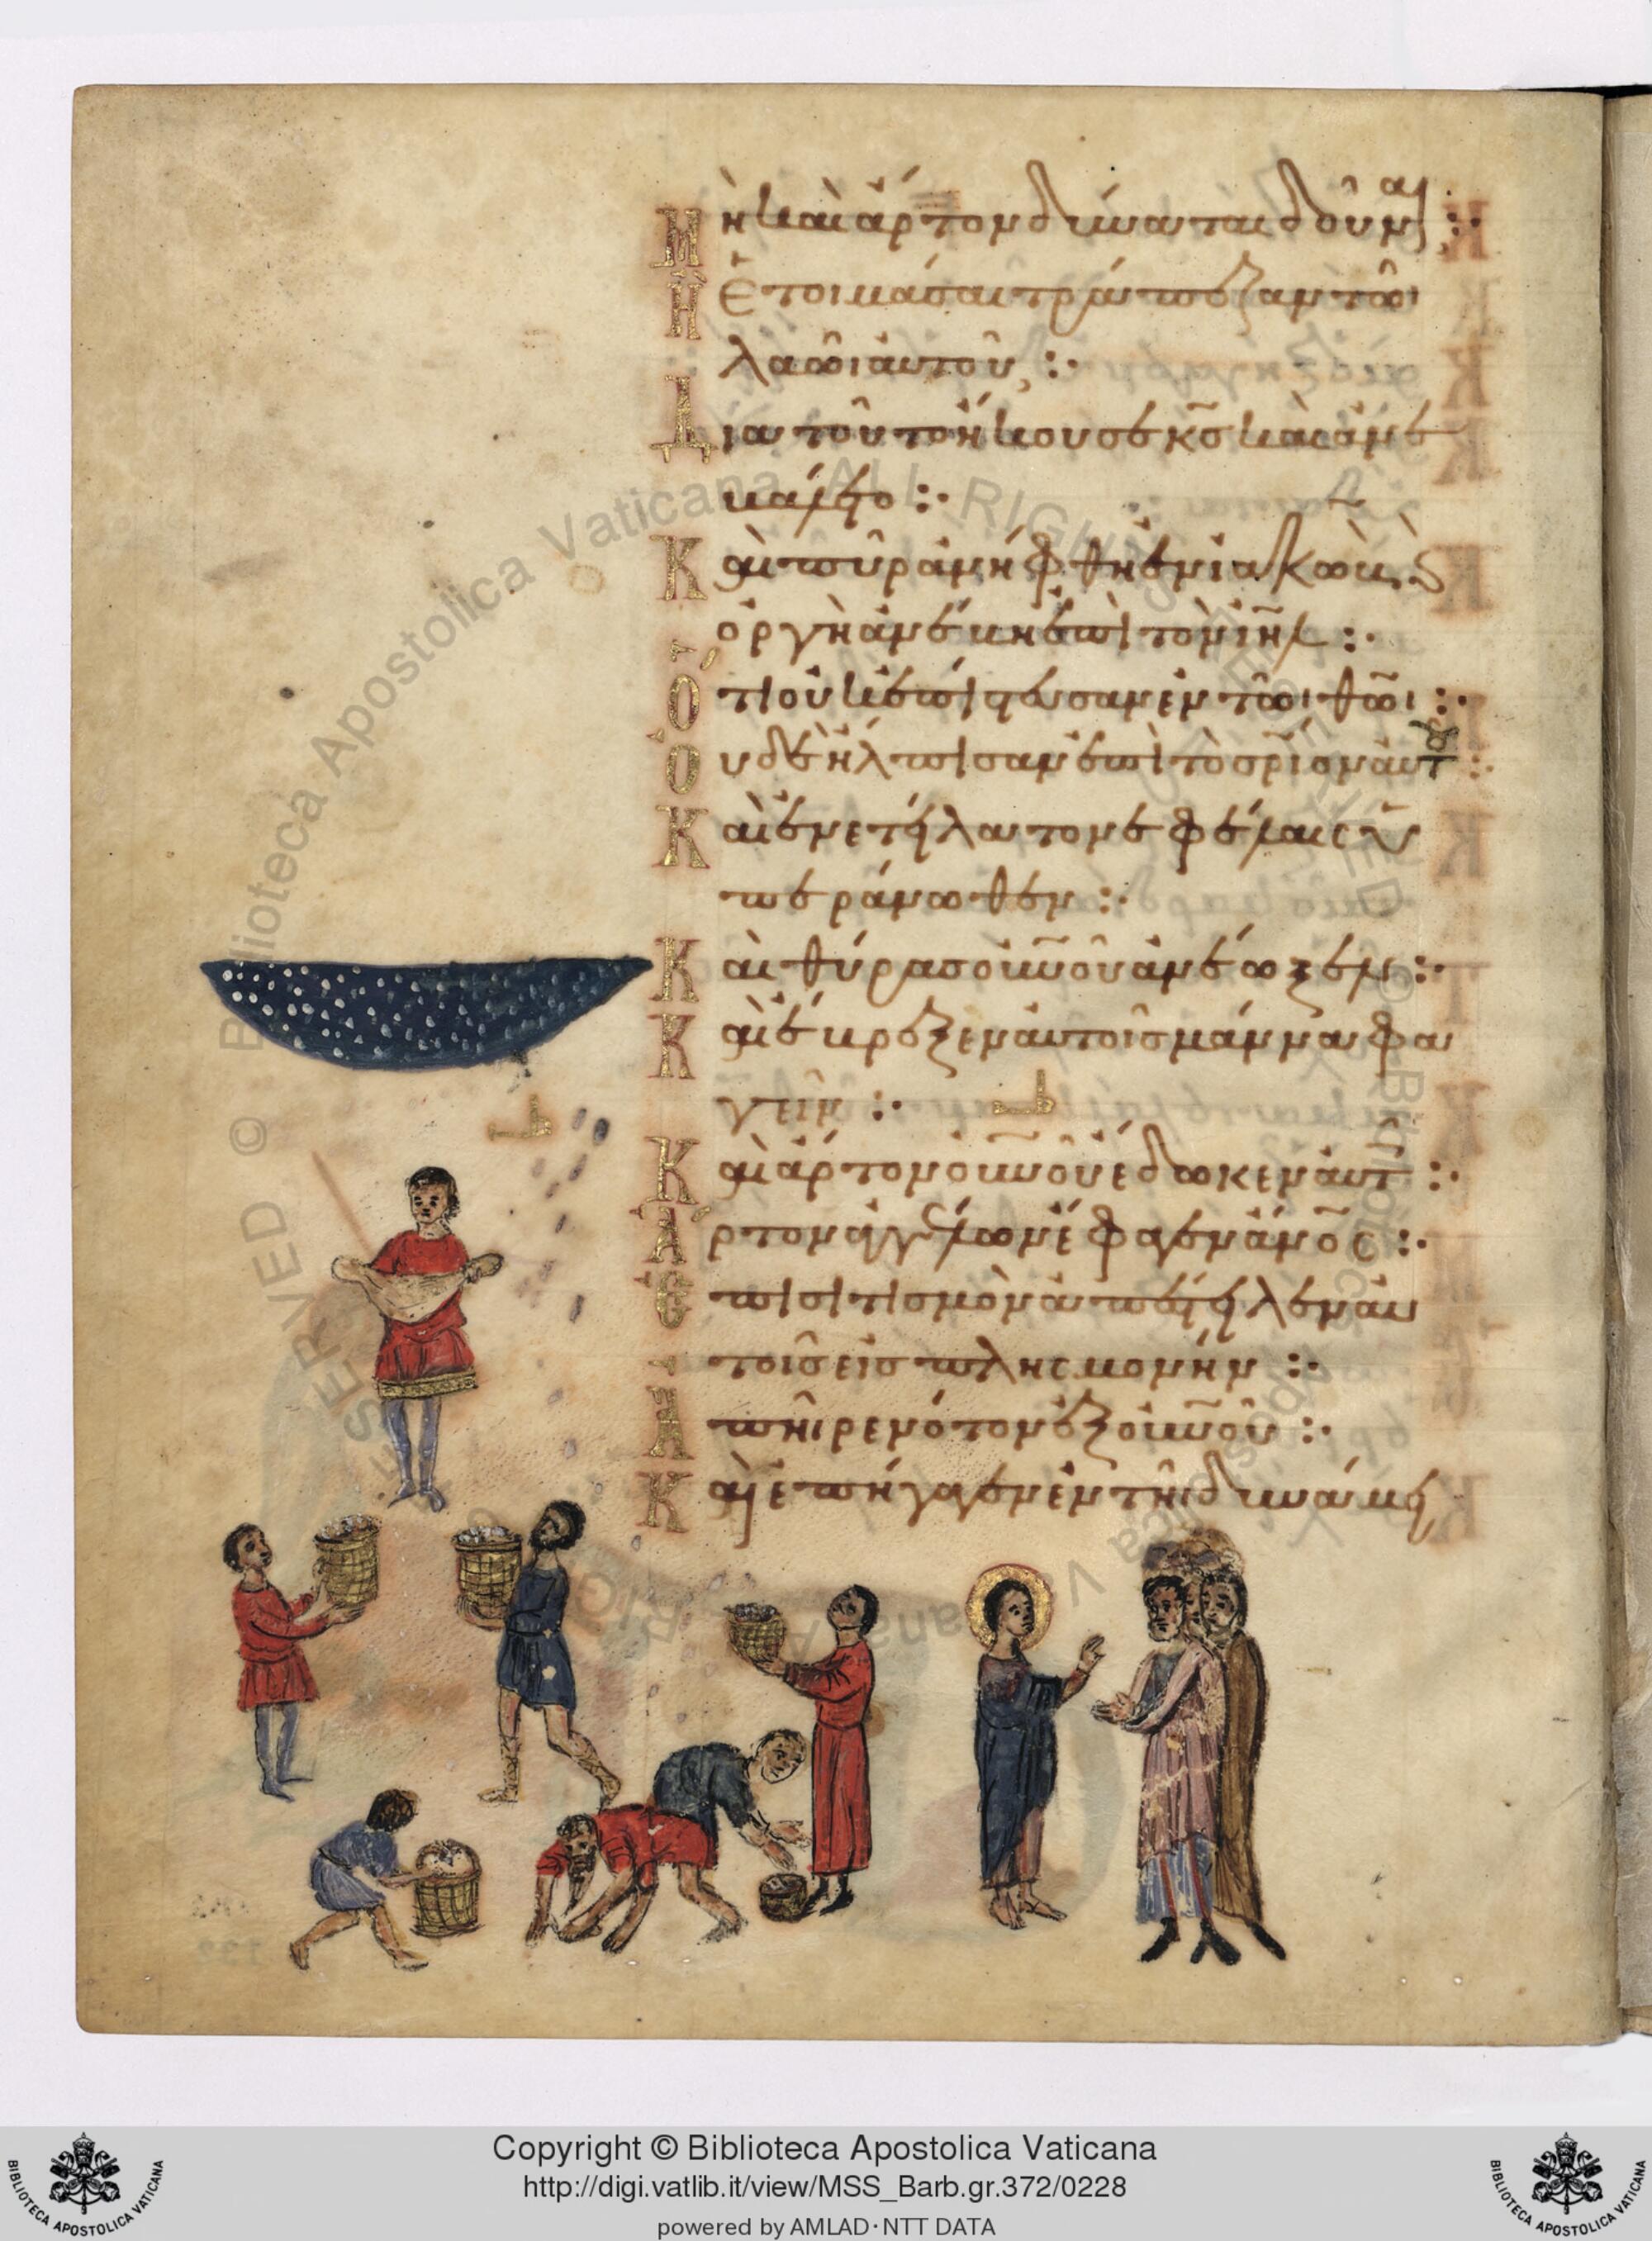 Μὴ καὶ ἄρτον δύναται δοῦναι :·
Ἢ ἑτοιμάσαι τράπεζαν τῶι
λαῶι αὐτοῦ, :·
Διατοῦτο ἤκουσε κ̅σ̅ καὶ ἀνε
βάλετο :·
Καὶ πῦρ ἀνήφθη ἐν ϊακὼβ, καὶ
ὀργὴ ἀνέβη ἐπὶ τὸν ι̅η̅λ̅ :·
Ὅτι οὐκ ἐπίστευσαν ἐν τῶι θ̅ῶ̅ι̅ :·
Οὐδὲ ἤλπισαν ἐπὶ τὸ σ̅ρ̅ίον αὐτοῦ :·
Καὶ ἐνετείλατο νεφέλαις ὑ
περάνωθεν :·
Καὶ θύρας ο̅υ̅ν̅οῦ ἀνέωξεν :·
Καὶ ἔβρεξεν αὐτοῖς μάννα φα
γεῖν :·
Καὶ ἄρτον ο̅υ̅ν̅οῦ ἔδωκεν αὐτ :·
Ἄρτον ἀγγέλων ἔφαγεν ἄν̅ο̅ς̅ :·
Ἐπισιτισμὸν ἀπέστειλεν αὐ
τοῖς εἰς πλησμονήν :·
Ἀπῆρε νότον ἐξ ο̅υ̅ν̅οῦ :·
Καὶ ἐπήγαγεν ἐν τῆι δυνάμει
© Biblioteca Apostolica Vaticana ALL RIGHTS RESERVED
Copyright © Biblioteca Apostolica Vaticana
http://digi.vatlib.it/view/MSS_Barb.gr.372/0228
powered by AMLAD·NTT DATA
BIBLIOTECA APOSTOLICA VATICANA
BIBLIOTECA APOSTOLICA VATICANA